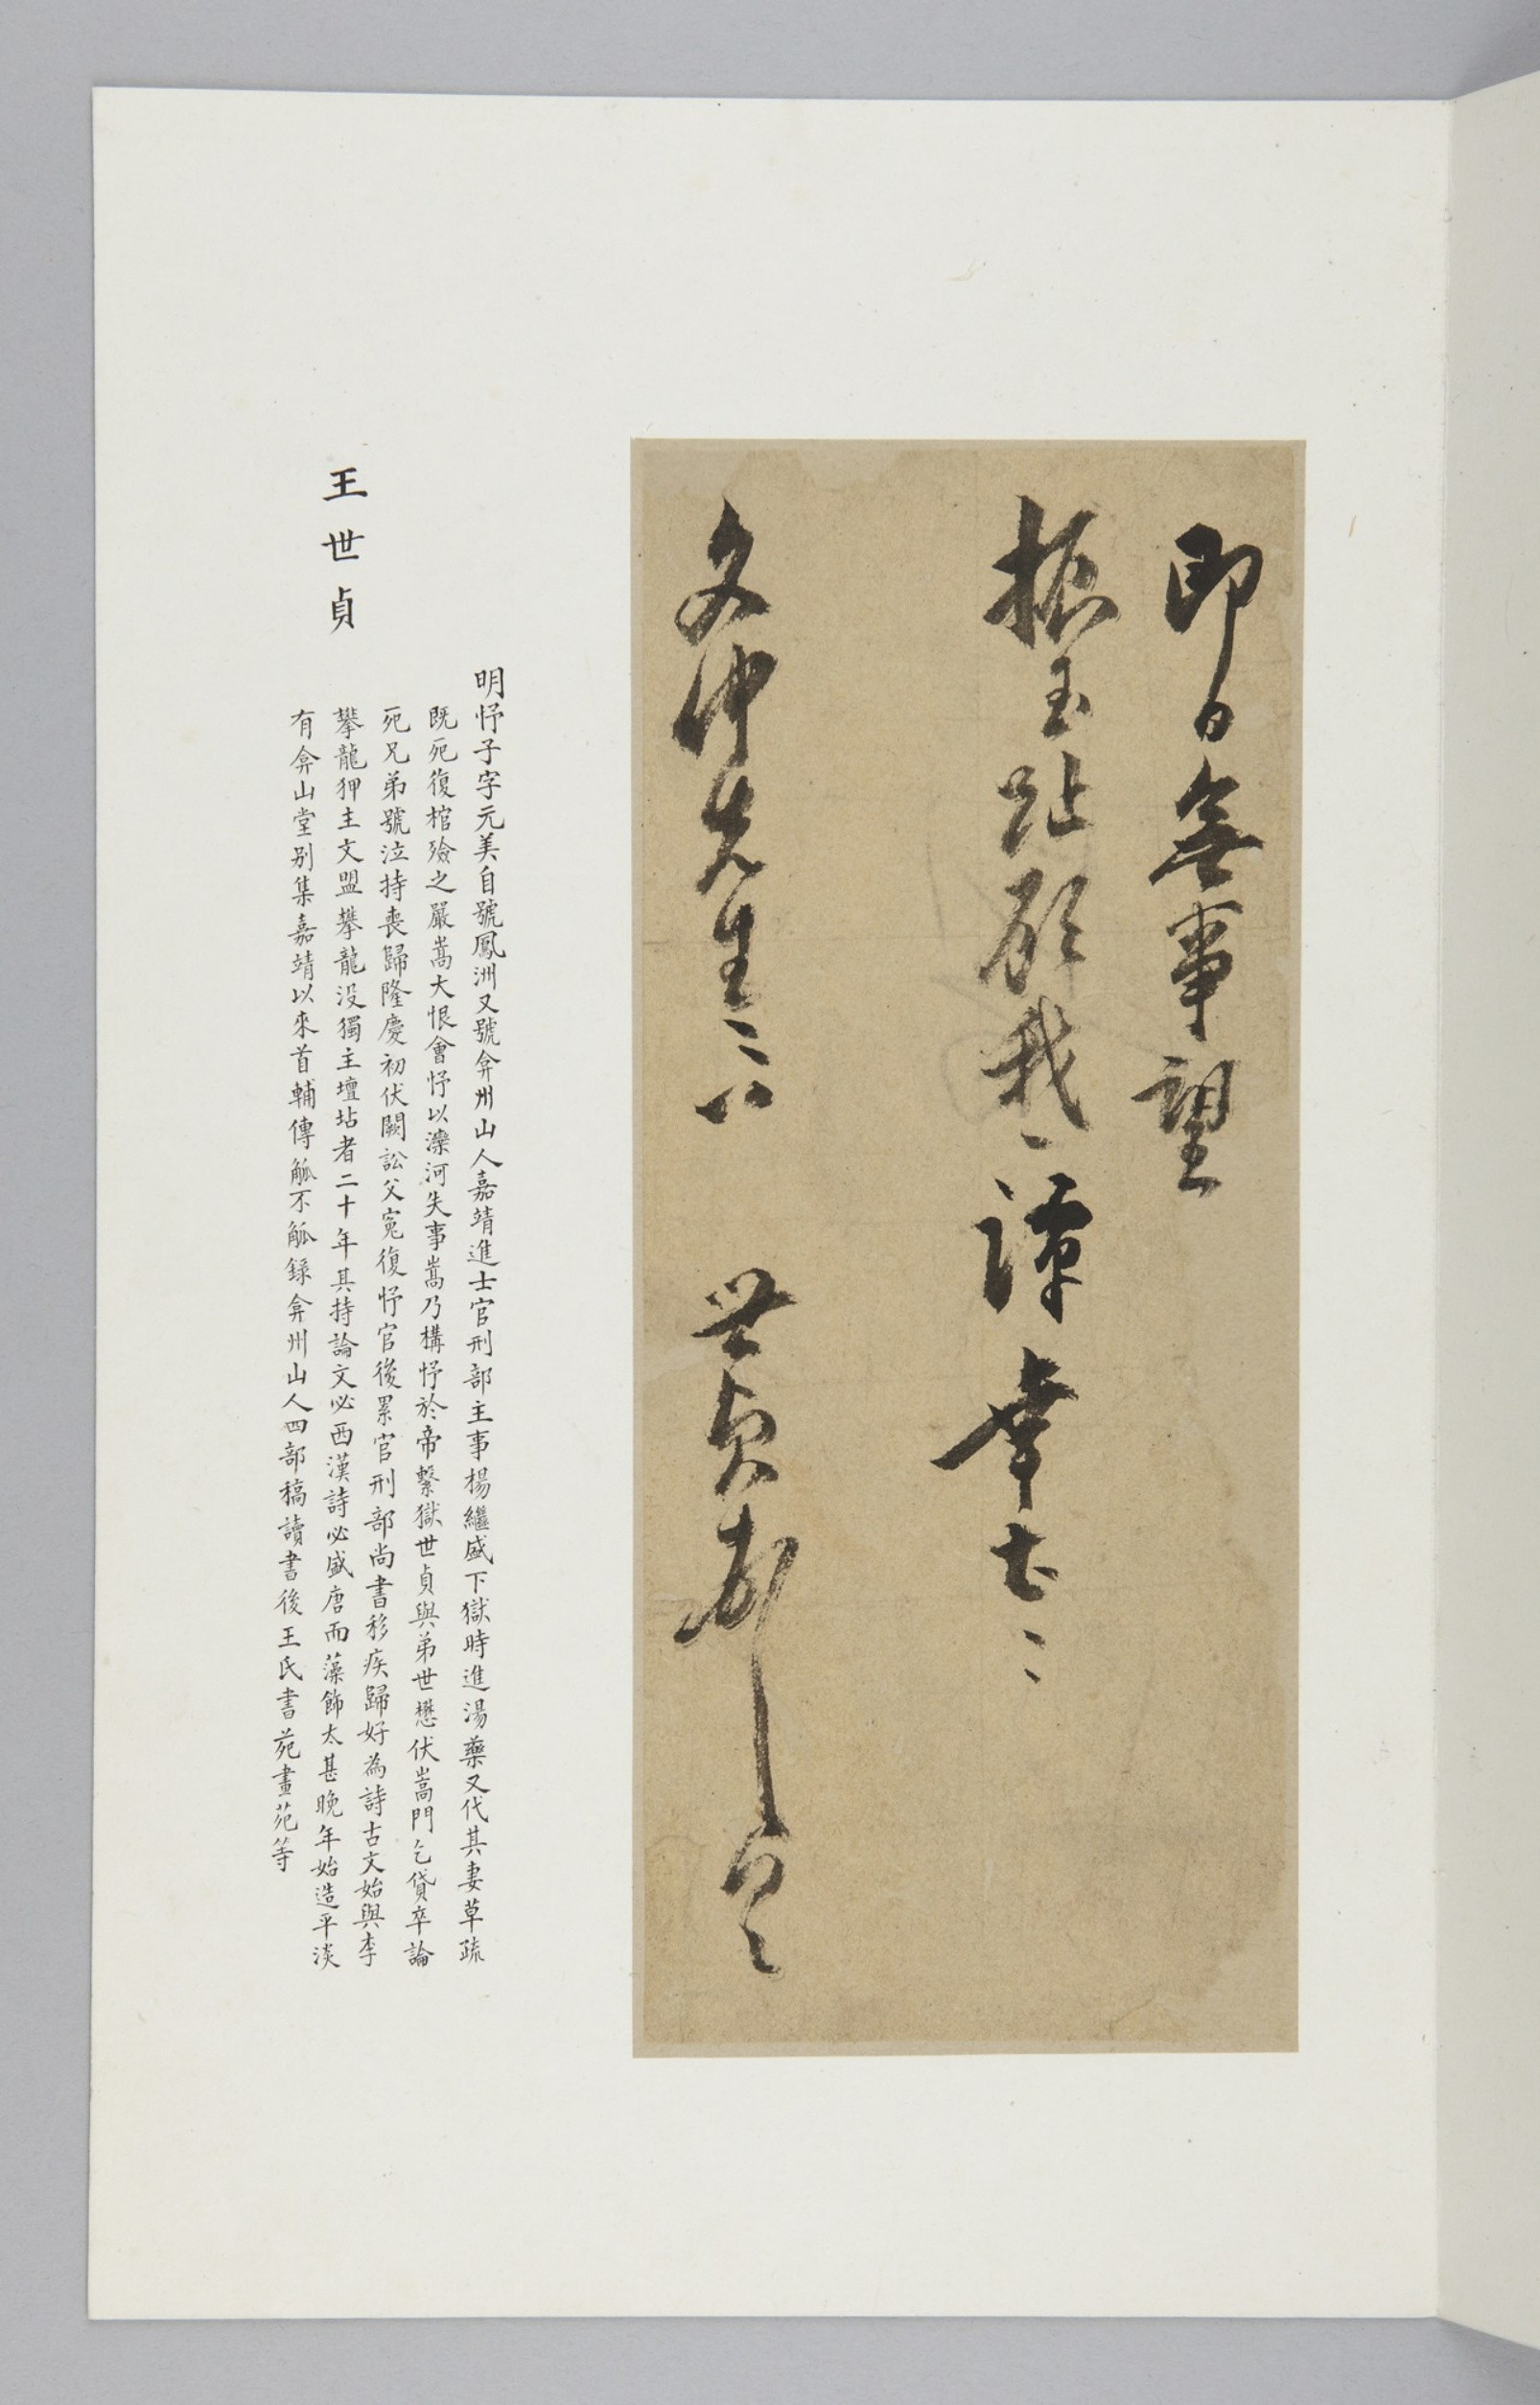 即日無事望
振玉趾顧我一談幸甚〻
文仲先生〻
世貞
王世貞
明忬子字元美自號鳳洲又號弇州山人嘉靖進士官刑部主事楊繼盛下獄時進湯藥又代其妻草疏
既死復棺殮之嚴嵩大恨會忬以灤河失事嵩乃構忬於帝繫獄世貞與弟世懋伏嵩門乞貸卒論
死兄弟號泣持喪歸隆慶初伏闕訟父寃復忬官後累官刑部尚書移疾歸好為詩古文始與李
攀龍狎主文盟攀龍没獨主壇坫者二十年其持論文必西漢詩必盛唐而藻飾太甚晚年始造平淡
有弇山堂别集嘉靖以來首輔傳觚不觚録弇州山人四部稿讀書後王氏書苑畫苑等